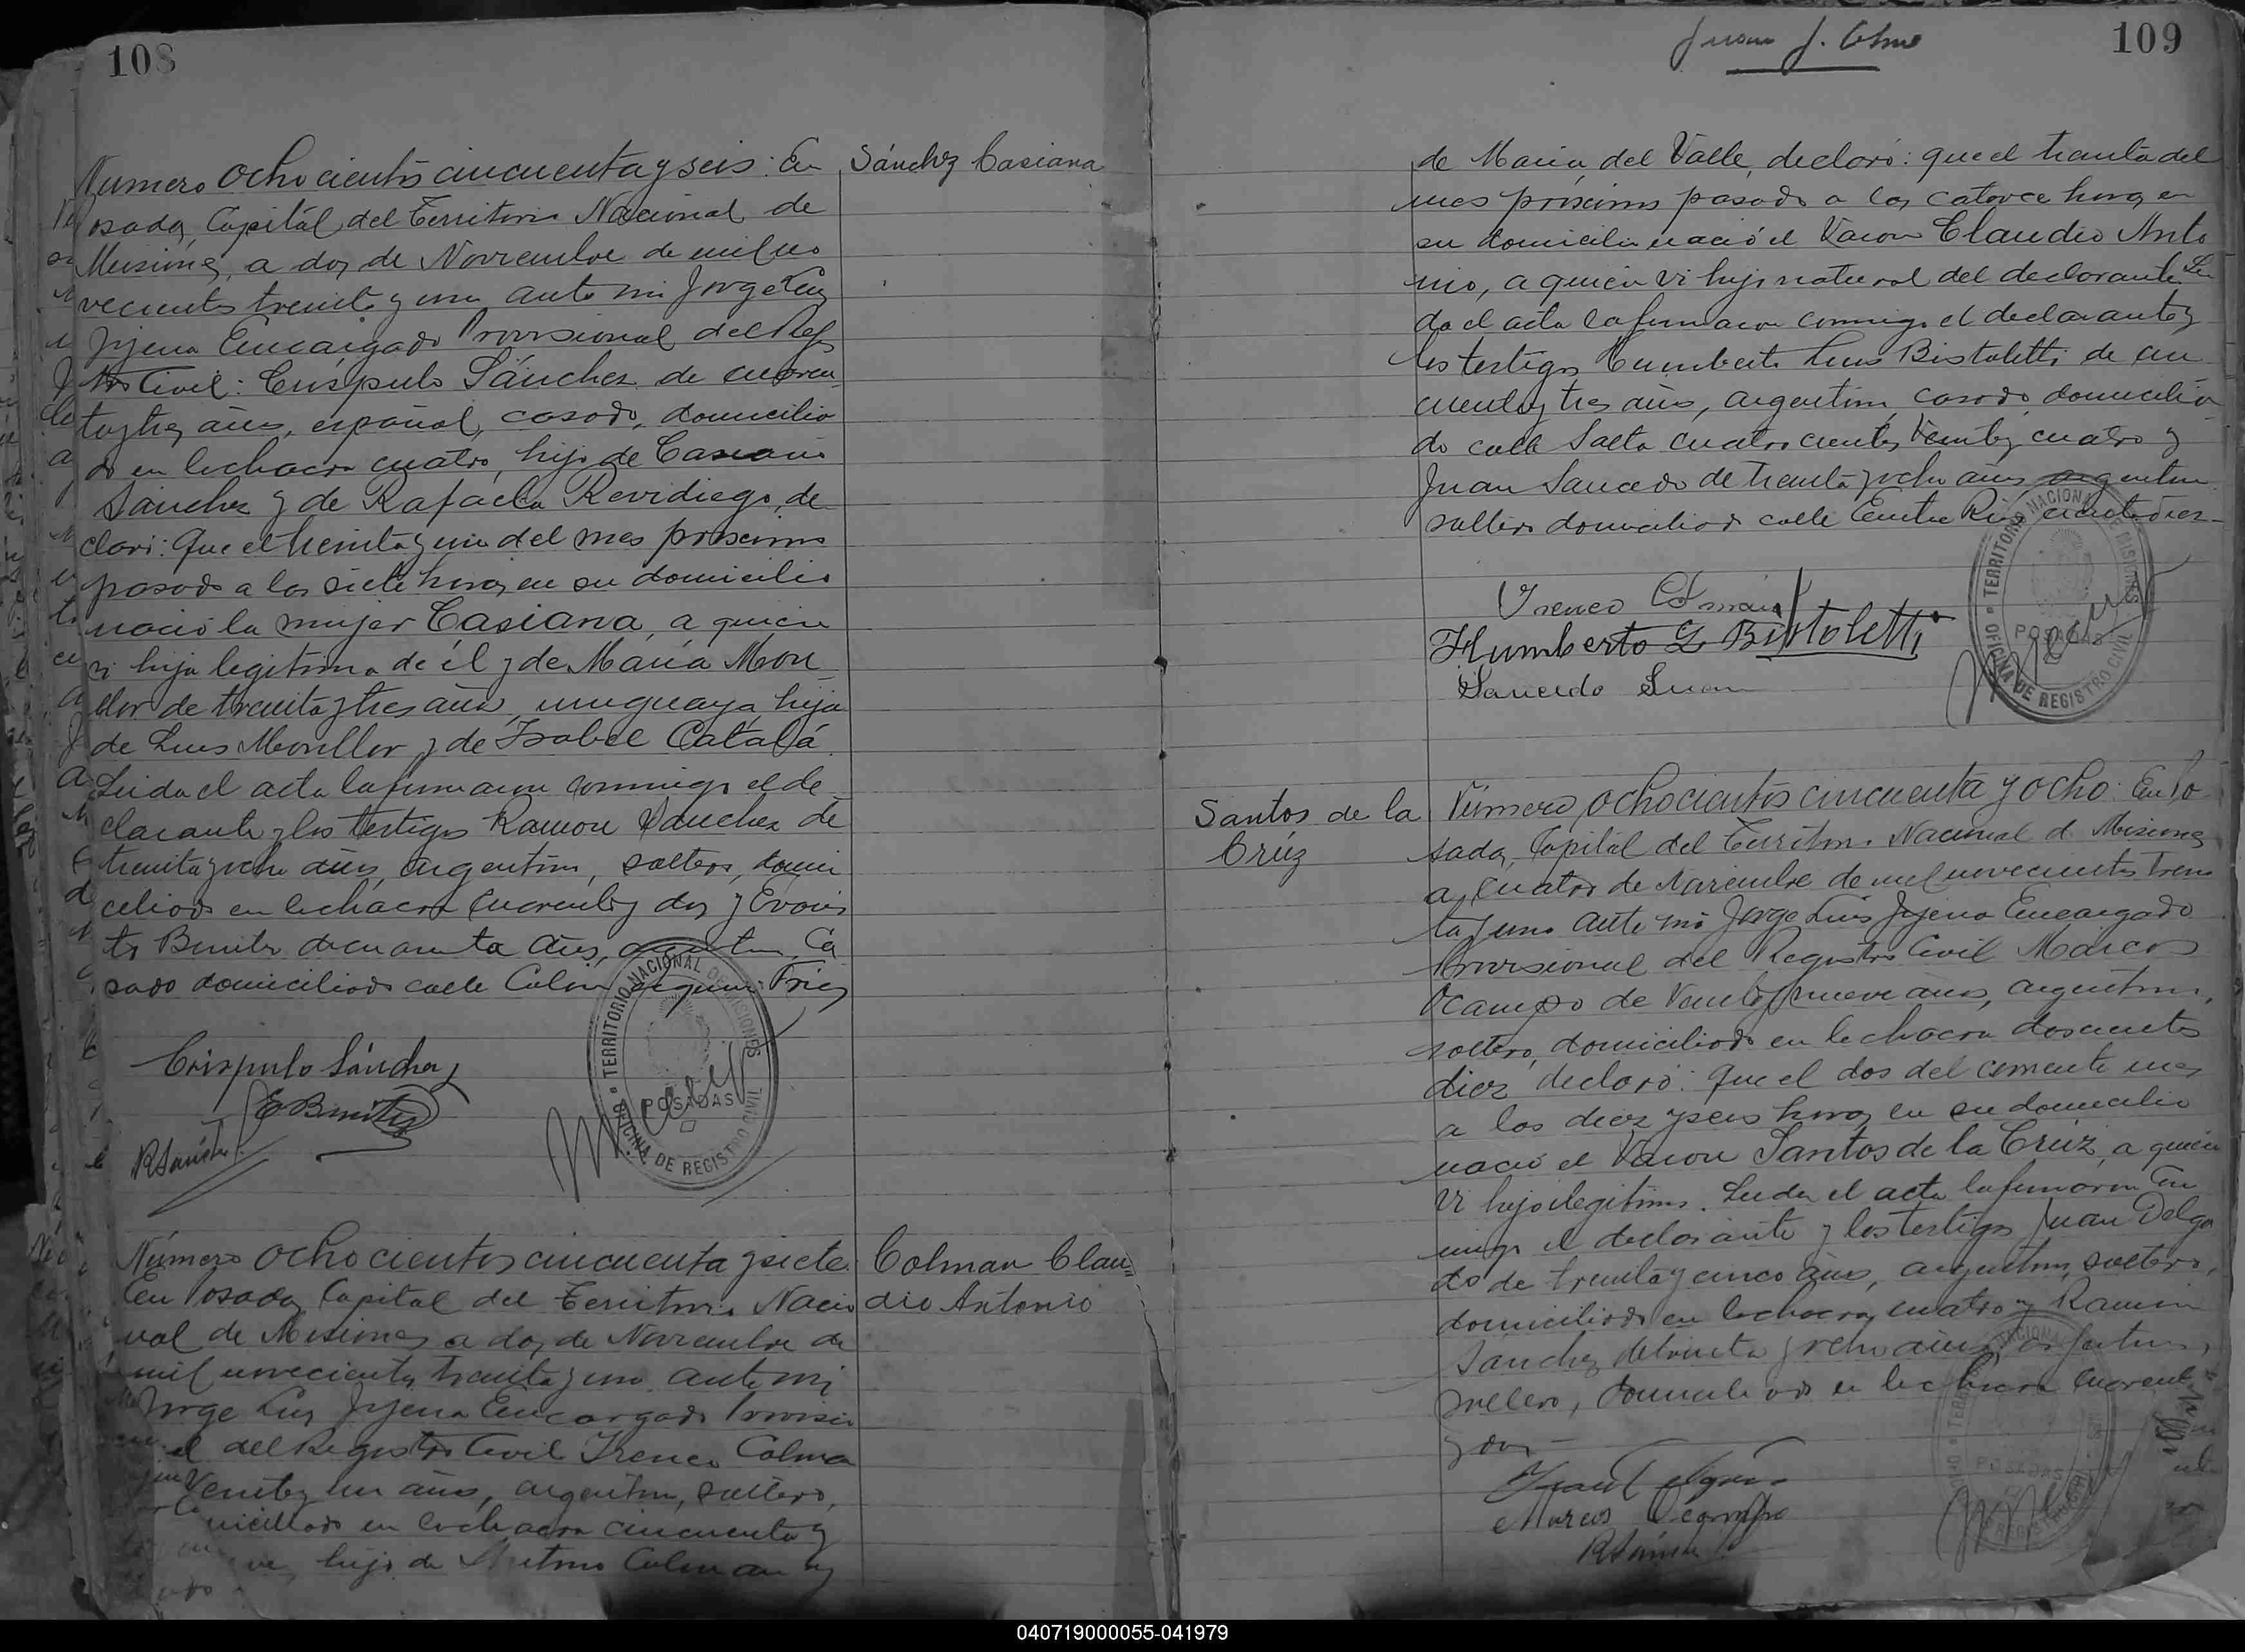 108
Numero ochocientos cincuenta y seis: En
Sánchez Casiana
Posadas, Capital del Territorio Nacional de
Misiones, a dos de Noviembre de mil no
vecientos treinta y uno ante mi Jorge Luis
Jijena Encargado Provisional del Regis
tro Civil: Críspulo Sánchez de cuaren
ta y tres años, español, casado, domicilia
do en la chacra cuatro, hijo de Casiano
Sánchez y de Rafaela Revidiego, de
claró: Que el treinta y uno del mes proximo
pasado a las siete horas en su domicilio
nació la mujer Casiana, a quien
vi hija legitima de él y de María Mon
llor de treinta y tres años, uruguaya, hija
de Luis Monllor y de Isabel Catalá.
Leida el acta la firmaron conmigo el de
clarante y los testigos Ramon Sanchez de
treinta y ocho años, argentino, soltero, domi
ciliado en la chacra cuarenta y dos y Evaris
to Benitez de cuarenta años, argentino, ca
sado domiciliado calle Colón esquina Frias
Crispulo Sánchez
E Benitez
RSánchez
TERRITORIO NACIONAL DE MISIONES
POSADAS
OFICINA DE REGISTRO CIVIL
Número ochocientos cincuenta y siete
Colman Clau=
En Posadas, Capital del Territorio Nacio
dio Antonio
nal de Misiones a dos de Noviembre de
mil novecientos treinta y uno ante mi
Jorge Luis Jijena Encargado Provisio
del Registro Civil Ireneo Colman
veinte y un años, argentino, soltero,
en la chacra cincuenta y
hijo de Colman y
109
de Maria del Valle, declaró: que el treinta del
mes próximo pasado a las catorce horas en
su domicilio nació el Varon Claudio Anto
nio, a quien vi hijo natural del declarante. Lei
da el acta la firmaron conmigo el declarante y
los testigos Humberto Luis Bistoletti de cin
cuenta y tres años, argentino, casado, domicilia
do calle Salta cuatrocientos veinte y cuatro y
Juan Saucedo de treinta y ocho años argentino
soltero domiciliado calle Entre Rios ciento diez-
Ireneo Colman
Humberto L Bistoletti
Saucedo Juan
TERRITORIO NACIONAL DE MISIONES
POSADAS
OFICINA DE REGISTRO CIVIL
Santos de la
Crúz
Número ochocientos cincuenta y ocho: En Po
sadas, Capital del Territorio Nacional de Misiones
a cuatro de Noviembre de mil novecientos trein
ta y uno ante mi Jorge Luis Jijena Encargado
Provisional del Registro Civil Marcos
Ocampo de veinte y nueve años, argentino,
soltero, domiciliado en la chacra doscientos
diez declaró: Que el dos del corriente mes
a las diez y seis horas en su domicilio
nació el Varon Santos de la Crúz, a quien
vi hijo ilegitimo. Leida el acta la firmaron con
migo el declarante y los testigos Juan Delga
do de treinta y cinco años, argentino, soltero,
domiciliado en la chacra cuatro y Ramón
Sánchez de treinta y ocho años, argentino,
soltero, domiciliado en la chacra cuarenta
y dos-
Marcos Ocampo
RSánchez
040719000055-041979